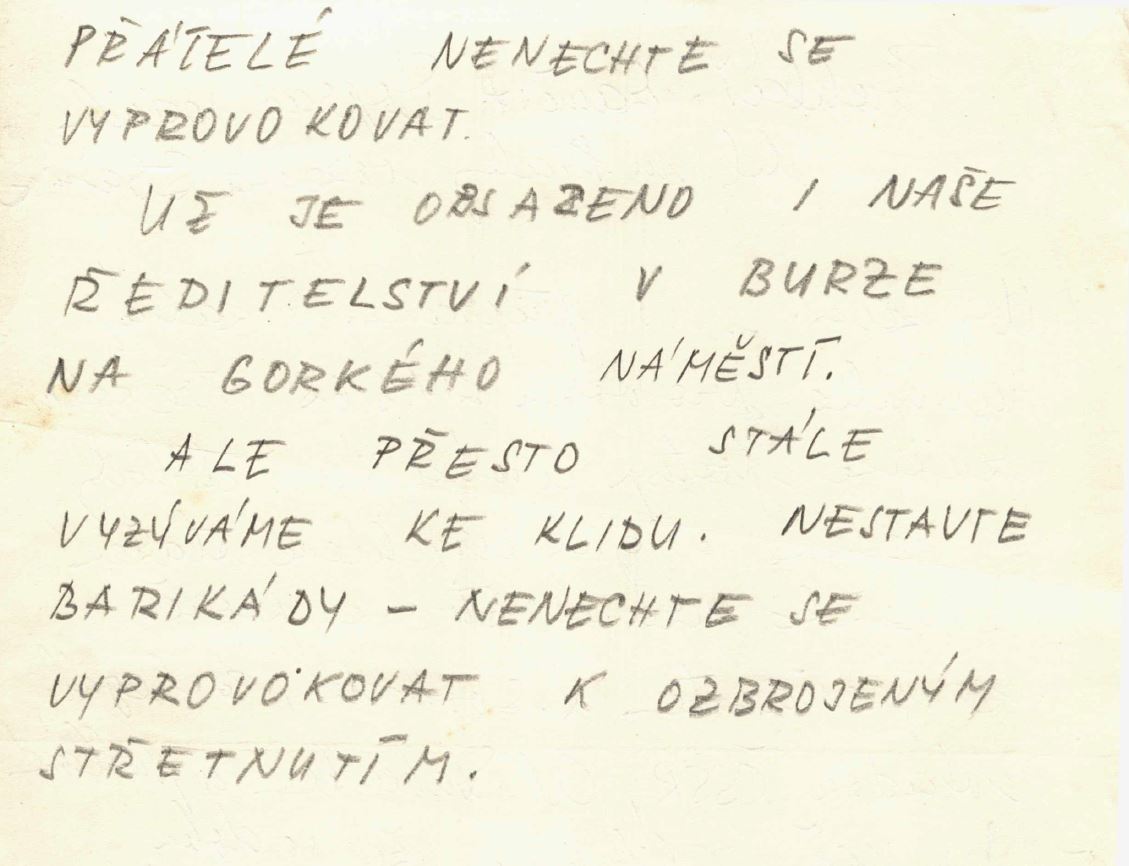 PŘÁTELÉ NENECHTE SE
VYPROVOKOVAT.
UŽ JE OBSAZENO I NAŠE
ŘEDITELSTVÍ V BURZE
NA GORKÉHO NÁMĚSTÍ.
ALE PŘESTO STÁLE
VYZÝVÁME KE KLIDU. NESTAVTE
BARIKÁDY – NENECHTE SE
VYPROVOKOVAT K OZBROJENÝM
STŘETNUTÍM.